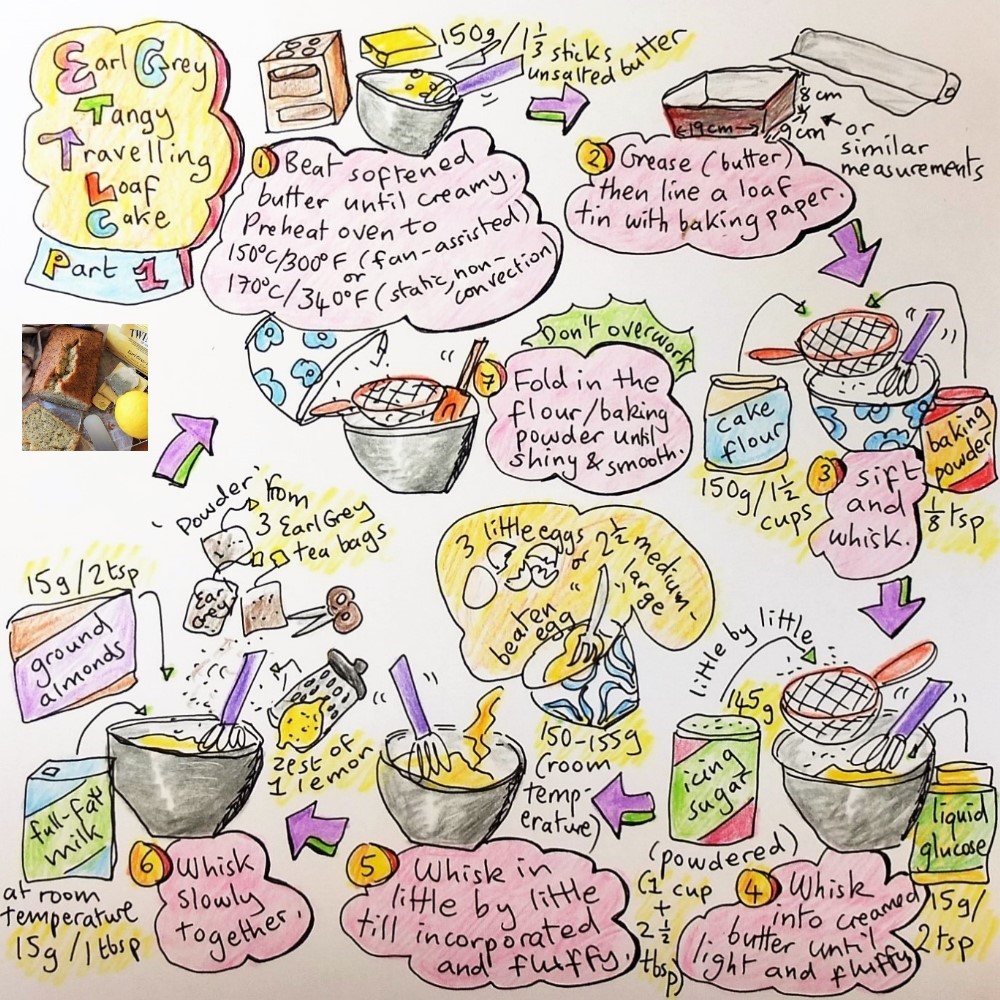 Earl Grey
Tangy
Travelling
Loaf
Cake
Part 1
150g/1 1/3 sticks
unsalted butter
1 Beat softened
butter until creamy.
Preheat oven to
150°C/300°F (fan-assisted)
or
170°C/340°F (static, non-
convection)
8cm
19cm
9cm
or
similar
measurements
2 Grease (butter)
then line a loaf
tin with baking paper.
cake
flour
150g/1 1/2
cups
baking
powder
1/8 tsp
3 sift
and
whisk.
little by little
145g
icing
sugar
(powdered)
(1 cup
+
2 1/2
tbsp)
liquid
glucose
15g/
2 tsp
4 Whisk
into creamed
butter until
light and fluffy
3 little eggs
or 2 1/2 medium-
large
beaten
egg
150-155g
(room
temp-
erature)
5 Whisk in
little by little
till incorporated
and fluffy.
'Powder' from
3 Earl Grey
tea bags
Earl
Grey
15g/2tsp
ground
almonds
zest of
1 lemon
full-fat
milk
at room
temperature
15g/1tbsp
6 Whisk
slowly
together.
Don't overwork
7 Fold in the
flour/baking
powder until
shiny & smooth.
TWI